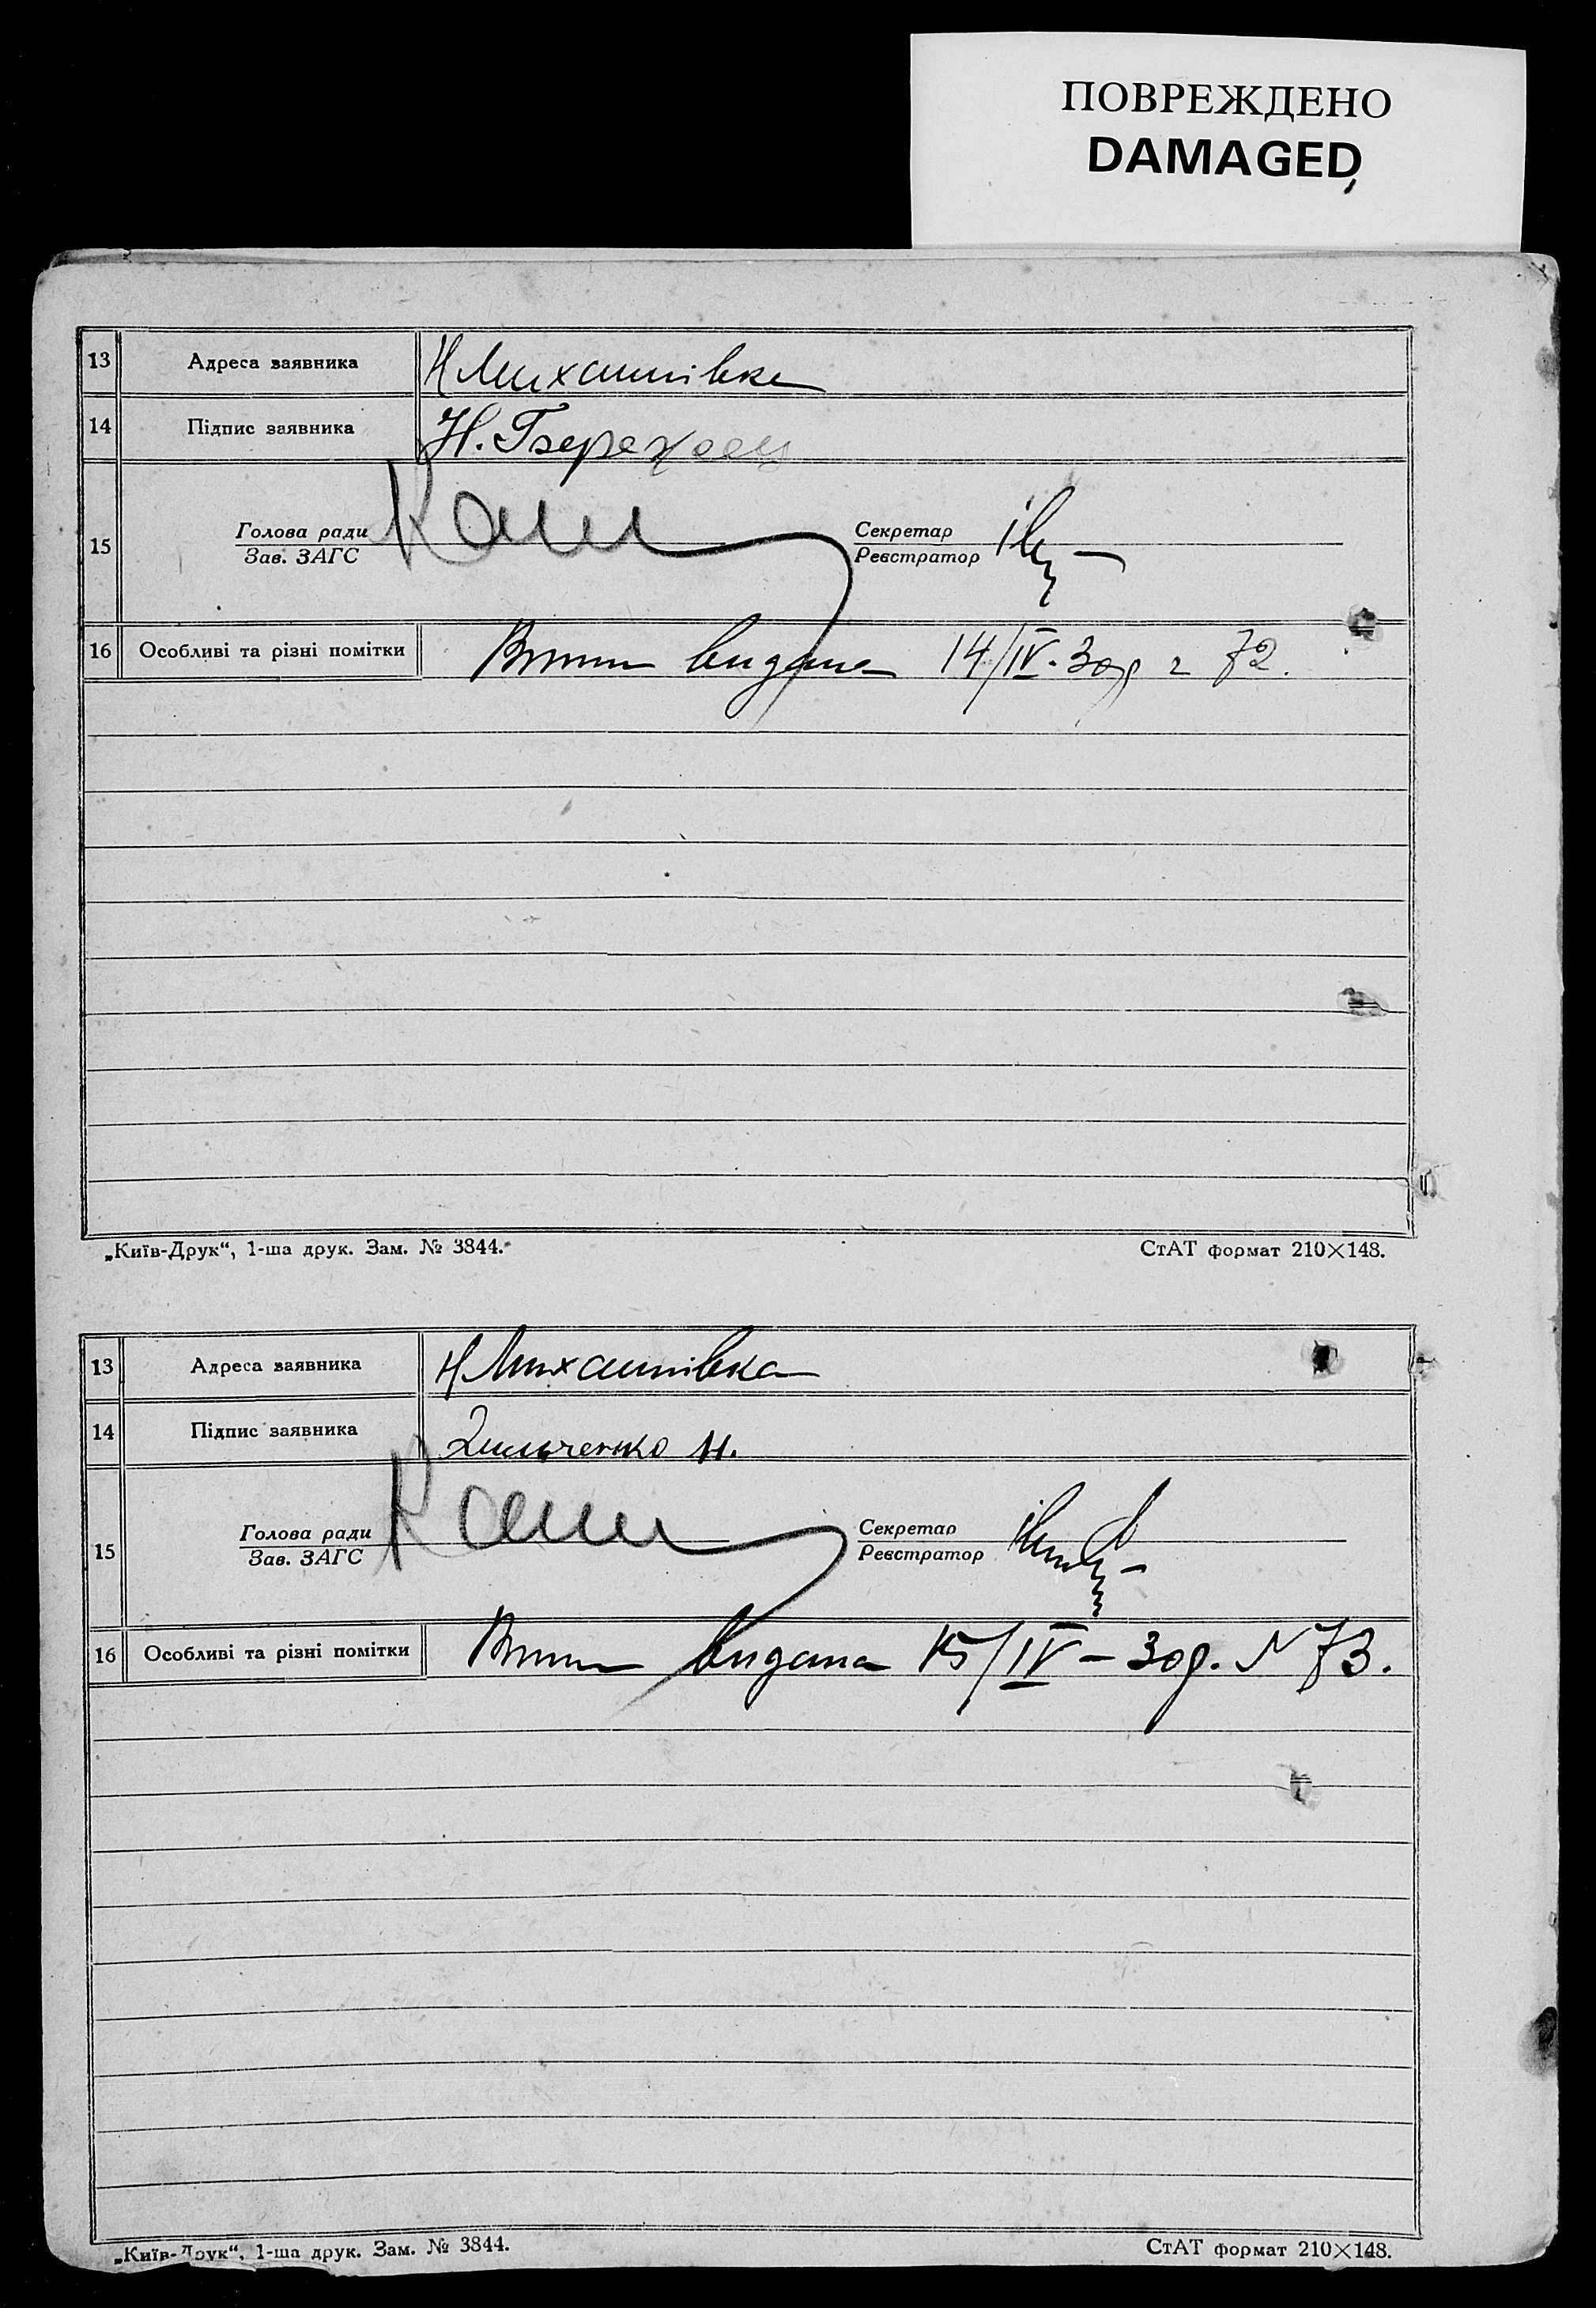 ПОВРЕЖДЕНО
DAMAGED
13 Адреса заявника Н Михайлівка
14 Підпис заявника Н.
15 Голова ради Секретар
Зав. ЗАГС Реєстратор
16 Особливі та різні помітки Витяг видана 14/IV-30р 72.
„Київ-Друк“, 1-ша друк. Зам. № 3844. СтАТ формат 210×148.
13 Адреса заявника Н Михайлівка
14 Підпис заявника Н.
15 Голова ради Секретар
Зав. ЗАГС Реєстратор
16 Особливі та різні помітки Витяг видана 15/IV-30р. N 73.
„Київ-Друк“, 1-ша друк. Зам. № 3844. СтАТ формат 210×148.